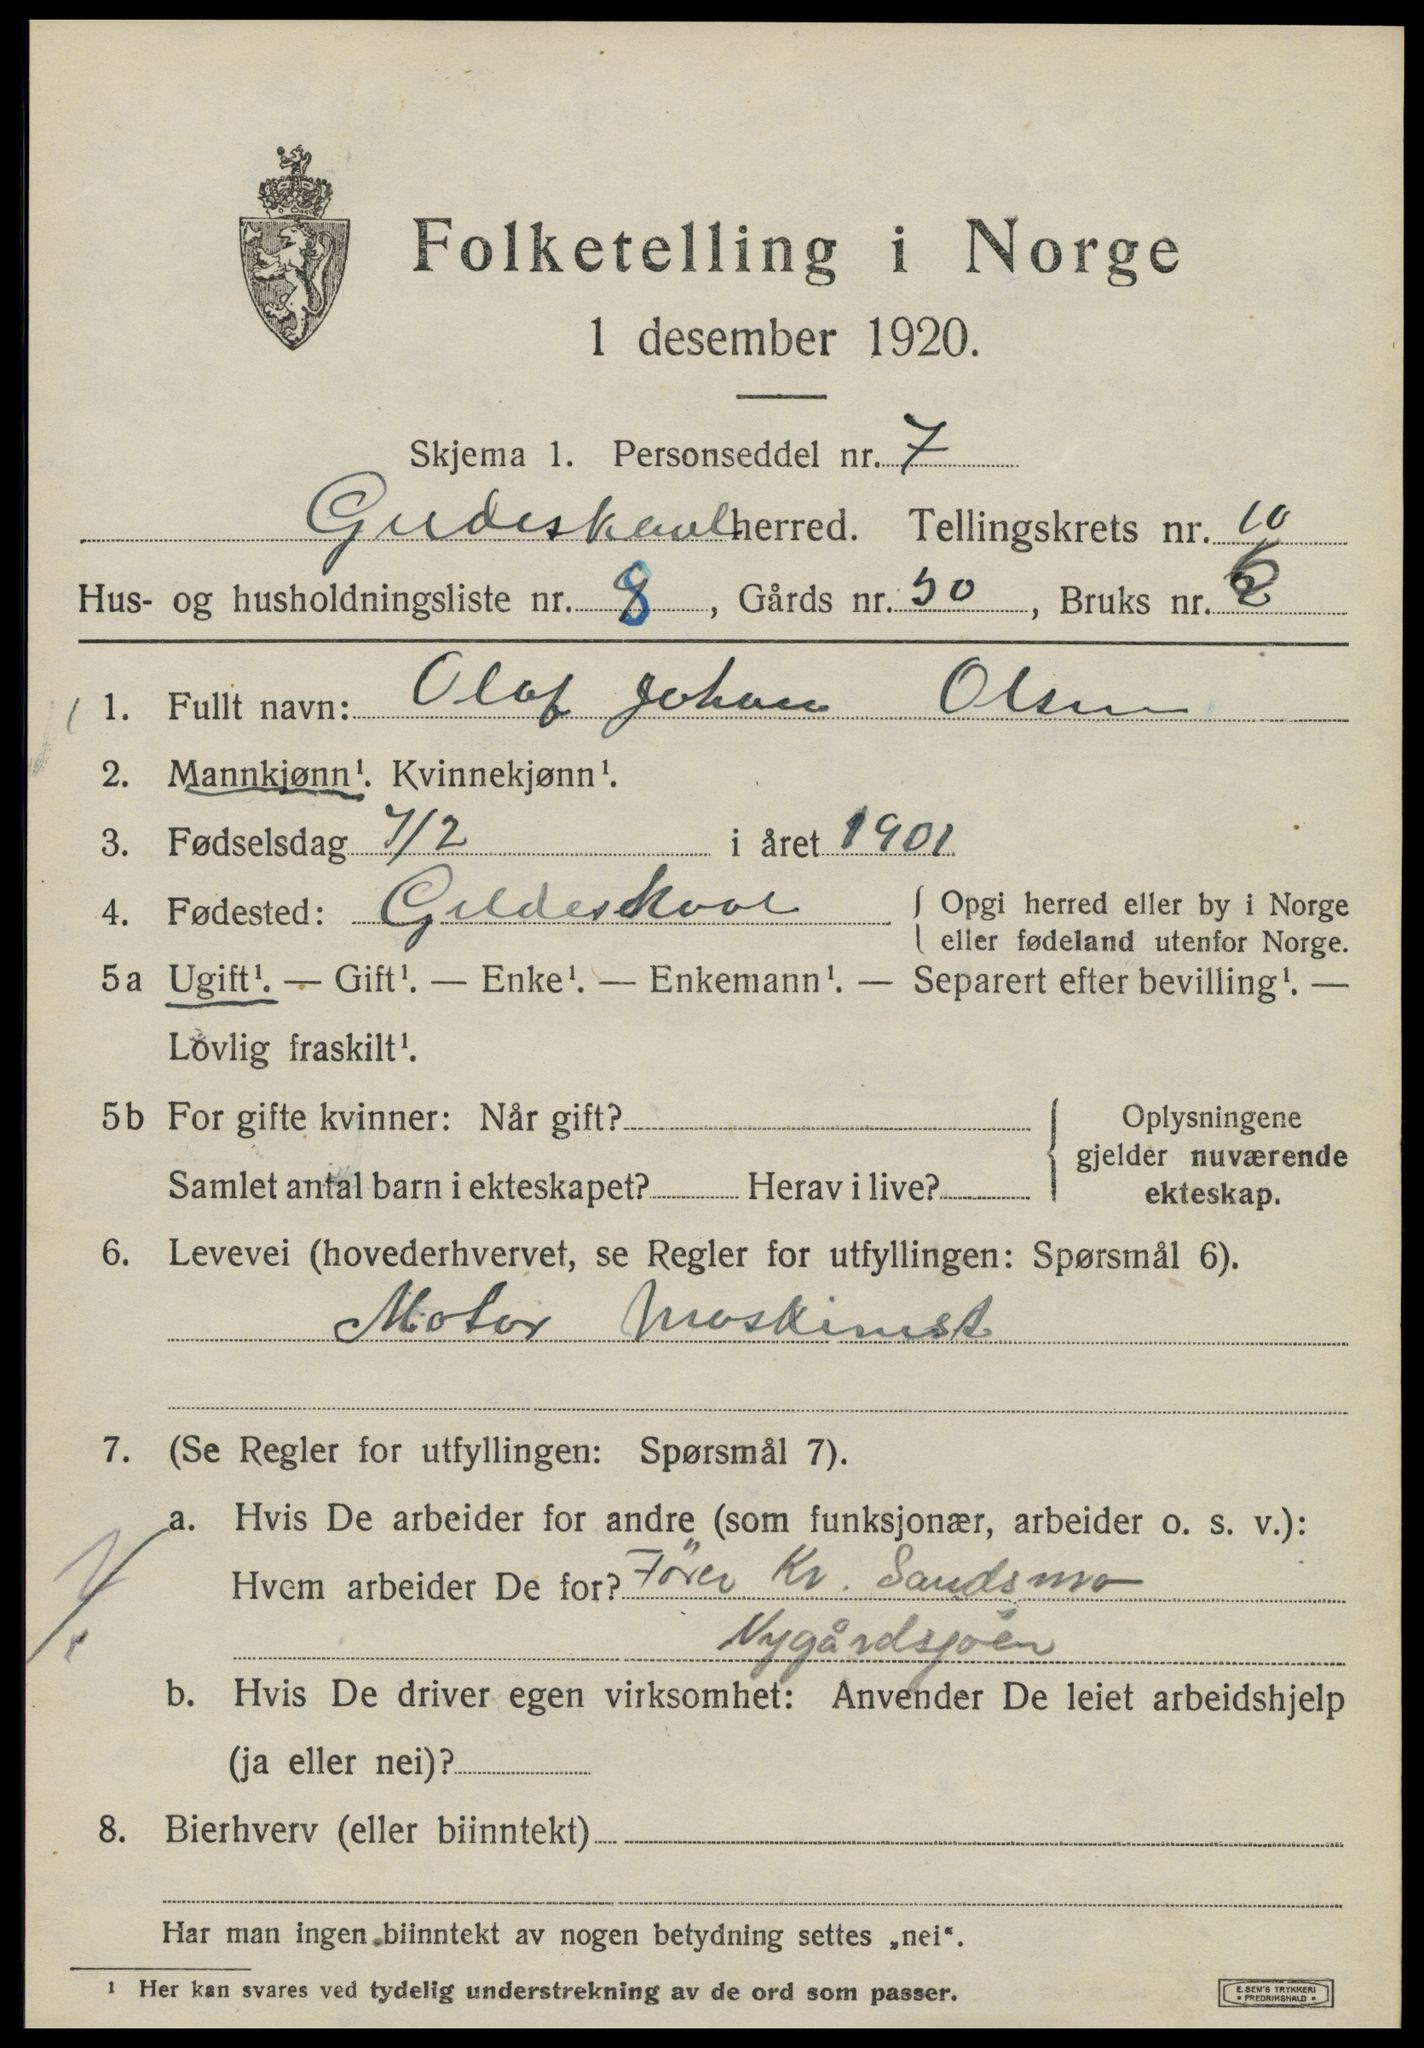 Folketelling i Norge
1 desember 1920.
Skjema 1. Personseddel nr. 7
Gildeskaal herred. Tellingskrets nr. 10
Hus- og husholdningsliste nr. 8, Gårds nr. 50, Bruks nr.
1. Fullt navn: Olaf Johan Olsen
2. Mannkjønn¹. Kvinnekjønn¹.
3. Fødselsdag 7/2 i året 1901
4. Fødested: Gildeskaal { Opgi herred eller by i Norge
eller fødeland utenfor Norge.
5a Ugift¹. — Gift¹. — Enke¹. — Enkemann¹. — Separert efter bevilling¹. —
Lovlig fraskilt¹.
5b For gifte kvinner: Når gift? { Oplysningene
gjelder nuværende
Samlet antal barn i ekteskapet? Herav i live? ekteskap.
6. Levevei (hovederhvervet, se Regler for utfyllingen: Spørsmål 6).
Motor Maskinist
7. (Se Regler for utfyllingen: Spørsmål 7).
a. Hvis De arbeider for andre (som funksjonær, arbeider o. s. v.):
Hvem arbeider De for? Förer Kr. Sandsmo
Nygårdsjöen
b. Hvis De driver egen virksomhet: Anvender De leiet arbeidshjelp
(ja eller nei)?
8. Bierhverv (eller biinntekt)
Har man ingen biinntekt av nogen betydning settes „nei“.
¹ Her kan svares ved tydelig understrekning av de ord som passer.
E. SEM'S TRYKKERI
FREDRIKSHALD